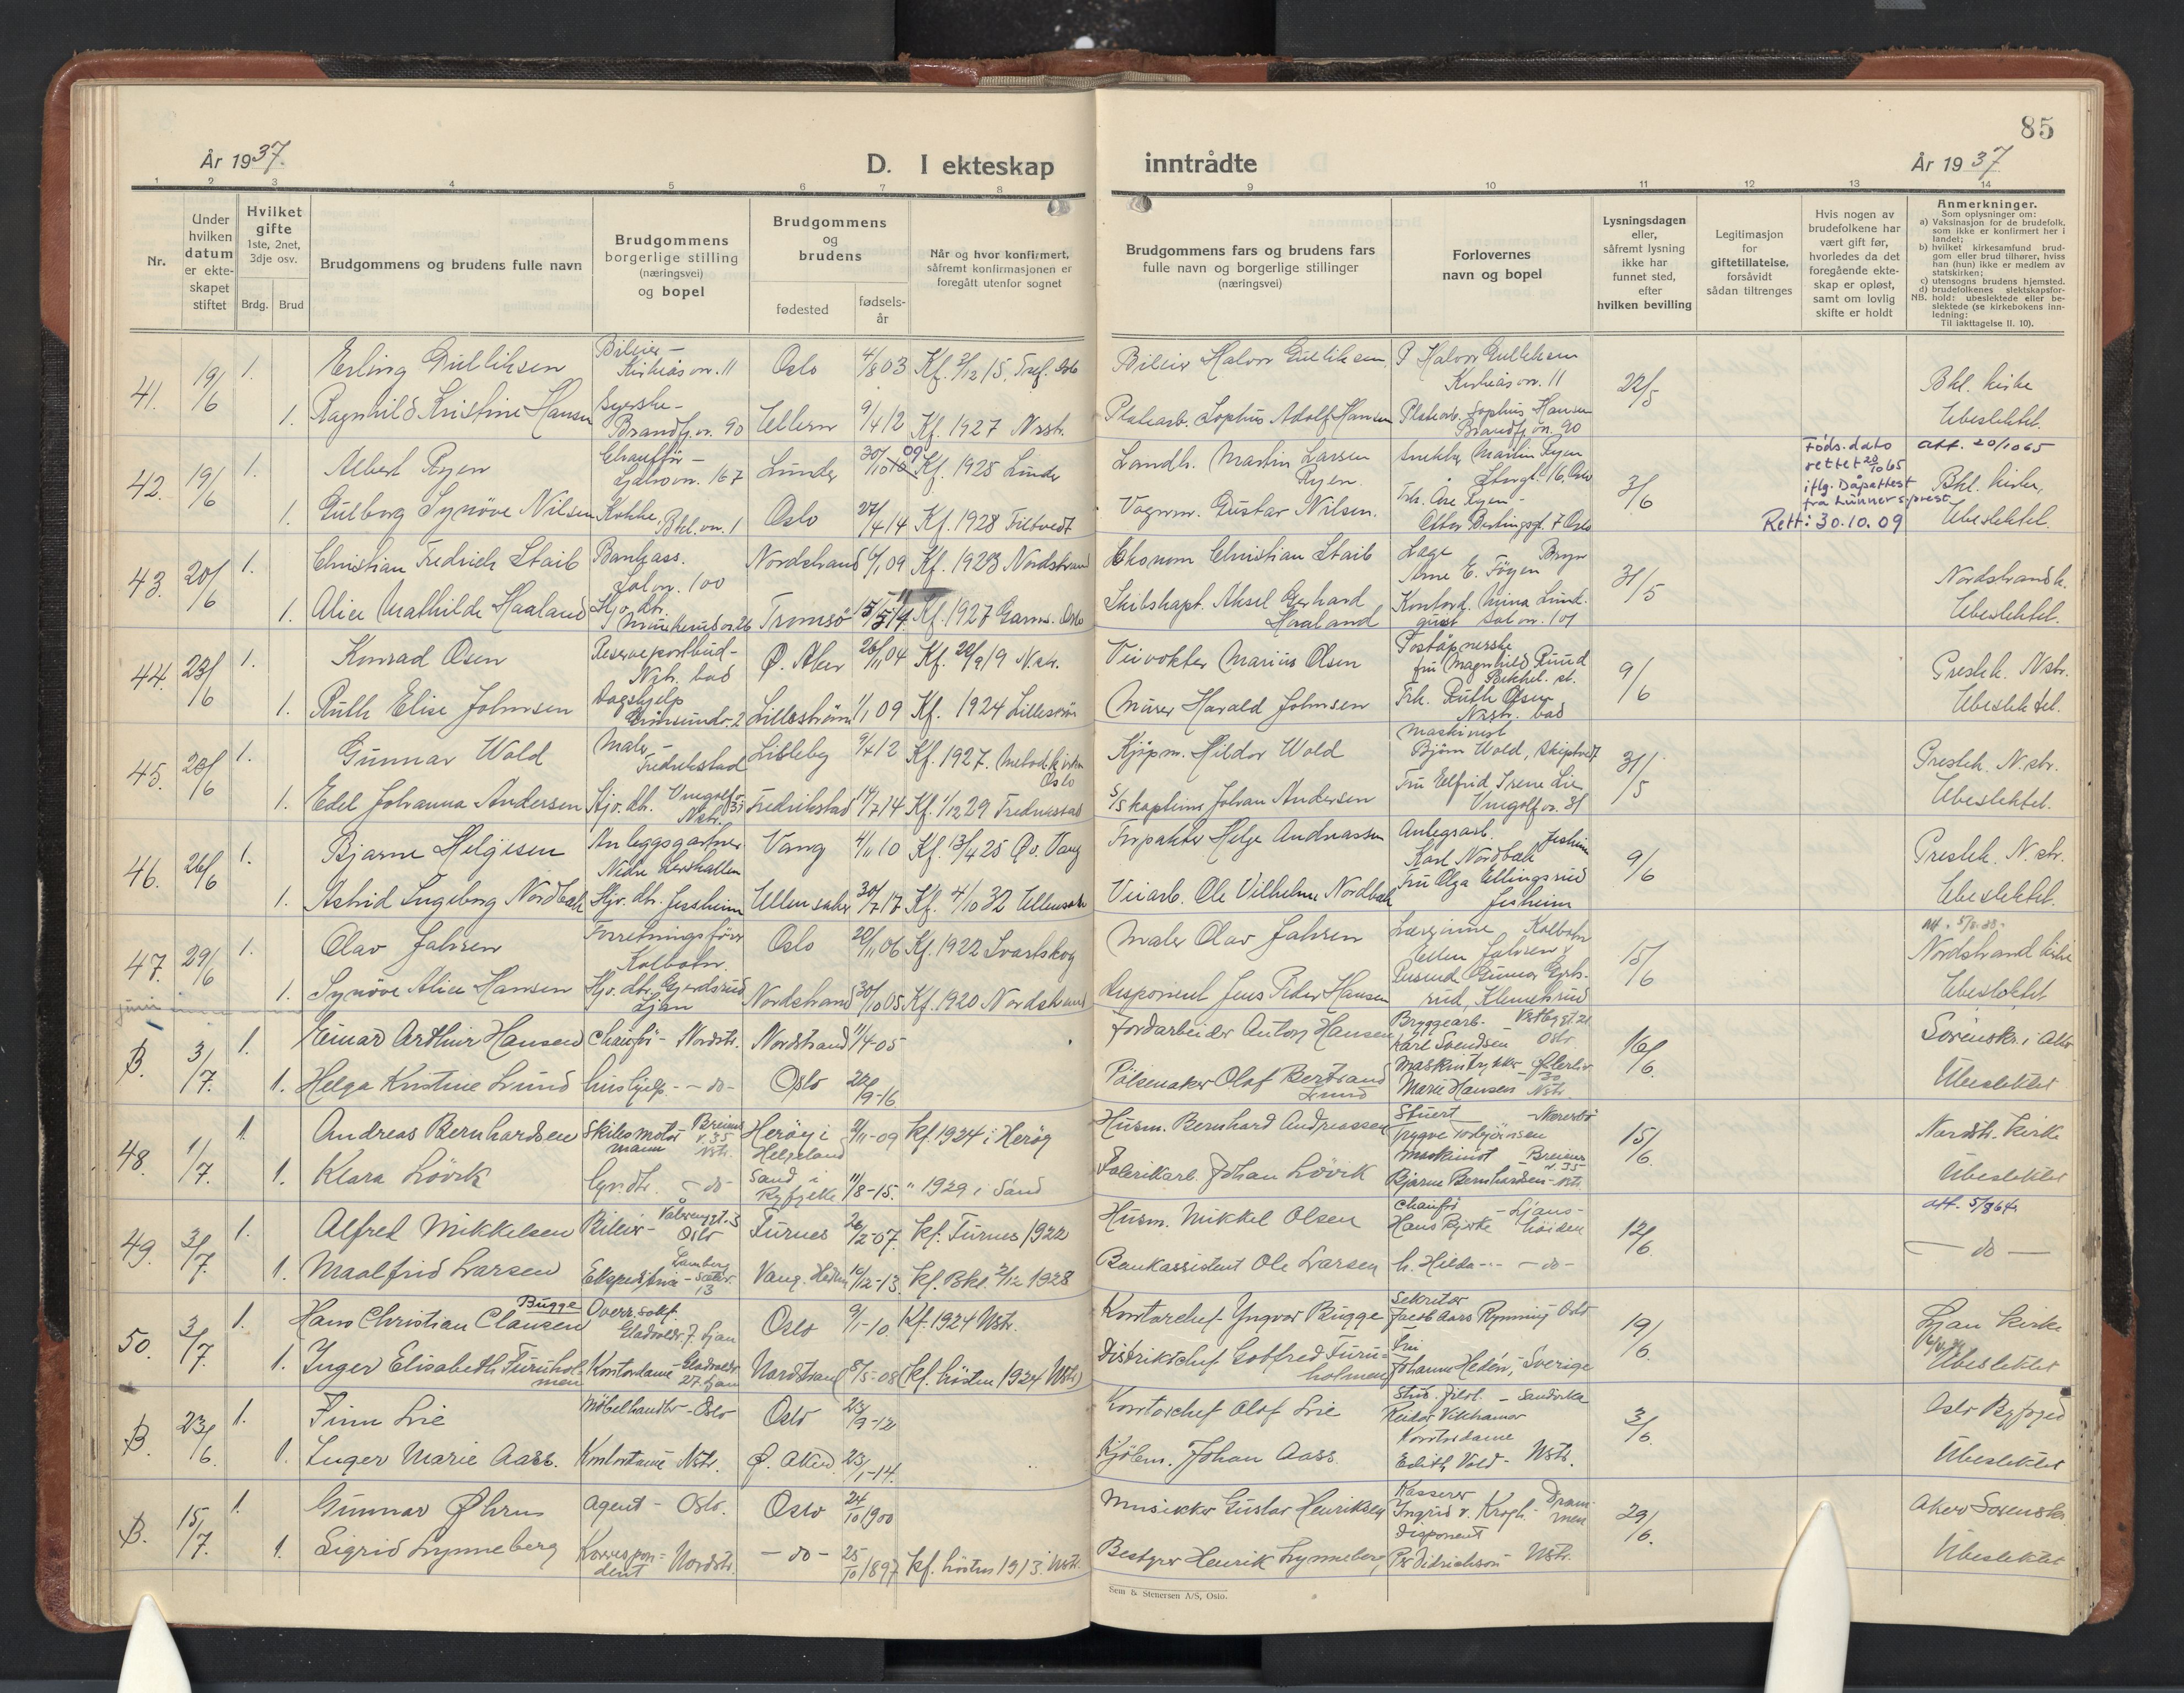 85
År 1937.
D. I ekteskap
inntrådte
År 1937
1 2 3 4 5 6 7 8 9 10 11 12 13 14
Nr.
Under hvilken datum er ekteskapet stiftet
Hvilket gifte
1ste, 2net, 3dje osv.
Brdg. Brud
Brudgommens og brudens fulle navn
Brudgommens borgerlige stilling (næringsvei) og bopel
Brudgommens og brudens
fødested
fødsels-år
Når og hvor konfirmert, såfremt konfirmasjonen er foregått utenfor sognet
Brudgommens fars og brudens fars fulle navn og borgerlige stillinger (næringsvei)
Forlovernes navn og bopel
Lysningsdagen eller, såfremt lysning ikke har funnet sted, efter hvilken bevilling
Legitimasjon for giftetillatelse, forsåvidt sådan tiltrenges
Hvis nogen av brudefolkene har vært gift før, hvorledes da det foregående ekteskap er opløst, samt om lovlig skifte er holdt
Anmerkninger.
Som oplysninger om:
a) Vaksinasjon for de brudefolk, som ikke er konfirmert her i landet;
b) hvilket kirkesamfund brudgom eller brud tilhører, hviss han (hun) ikke er medlem av statskirken;
c) utensogns brudens hjemsted.
d) brudefolkenes slektskapsforhold: ubeslektede eller beslektede (se kirkebokens innledning:
NB.
Til iakttagelse II. 10).
41. 19/6 1. Erling Gulliksen Bileier - Kirkeåsvn. 11 Oslo 4/8 03 Kf. 5/12 15. Tref. Oslo Bileier Halvor Gulliksen P Halvor Gulliksen Kirkeåsvn. 11 22/5 Bkl. kirke
1. Ragnhild Kristine Hansen Syerske - Brandfj.vn. 90 Ullern 9/4 12 Kf. 1927 Nrstr. Platearb. Sophus Adolf Hansen Platearb. Sophus Hansen Brandfj.vn. 90 Ubeslektet.
42. 19/6 1. Albert Ryen Chauffør - Ljabrovn. 167 Lunder 30/10 10 09 Kf. 1925 Lunder Landh. Martin Larsen Ryen Snekker Martin Ryen Storgt. 16, Oslo 3/6 Føds.dato rettet 20/10 65 iflg. Dåpattest fra Lunner s.prest Rett: 30.10.09 att. 20/10 65 Bkl. kirke,
1. Gulborg Synöve Nilsen Kokke, Bkl.vn. 1 Oslo 27/4 14 Kf. 1928 Filtvedt Vognm. Gustav Nilsen. Frk. Åse Ryen - Oslo Ubeslektet.
43. 20/6 1. Christian Fredrich Staib Bankass. Solvn. 100 Nordstrand 6/1 09 Kf. 1923 Nordstrand Ekonom Christian Staib Lage Bryn Arne E. Föyen 31/5 Nordstrand k.
1. Alice Mathilde Haaland Hjv. dtr. Munkerudvn. 26 Tromsö 15/5 14 Kf. 1927 Garns. Oslo Skibskapt. Aksel Gerhard Haaland Kontord. Mina Lundquist Solvn. 101 Ubeslektet.
44. 23/6 1. Konrad Olsen Reservepostbud - Nstr. bad Ø. Aker 26/11 04 Kf. 20/9 19 N.str. Veivokter Marius Olsen Poståpnerske fru Magnhild Ruud Bekkel. st. 9/6 Prestek. Nstr.
1. Ruth Elise Johnsen Dagshjelp Grönsundv. 2 Lilleström 1/1 09 Kf. 1924 Lilleström Murer Harald Johnsen Frk. Ruth Olsen Nrstr. bad Ubeslektet.
45. 20/6 1. Gunnar Wold Maler - Fredrikstad Lisleby 9/4 12 Kf. 1927. Metod.kirken Oslo Kjöpm. Hildor Wold Maskinist Björn Wold, Skiptvedt 31/5 Prestek. N.str.
1. Edel Johanna Andersen Hjv. dtr. Vingolfv. 31 Nstr. Fredrikstad 14/7 14 Kf. 1/12 29 Fredrikstad S/S kaptein Johan Andersen Fru Elfrid Irene Lie Vingolfvn. 31 Ubeslektet.
46. 26/6 1. Bjarne Helgesen Anleggsgartner Vang 4/11 10 Kf. 13/4 25 Öv. Vang Forpakter Helge Andreassen Anlegsarb. Jesheim Karl Nordbæk 9/6 Prestek. N.str.
1. Astrid Ingeborg Nordbæk Hjv. dtr. Jessheim Ullensaker 30/7 17 Kf. 4/10 32 Ullensaker Veiarb. Ole Vilhelm Nordbæk Fru Olga Ellingsrud Jesheim Ubeslektet.
47. 29/6 1. Olav Jahren Forretningsförer Kolbotn. Oslo 20/11 06 Kf. 1922 Svartskog Maler Olav Jahren Lærerinne Kolbotn Ellen Jahren 15/6 Nordstrand kirke
1. Synöve Alice Hansen Hjv. dtr. Gjerdsrud Ljan Nordstrand 30/10 05 Kf. 1920 Nordstrand Disponent Jens Peder Hansen Gunnar Gjersrud, Klemetsrud Ubeslektet
B. 3/7. 1. Einar Arthur Hansen Chaufför - Nordstr. Nordstrand 11/4-05 Jordarbeider Anton Hansen Bryggearb. - Vestbygt 21 Karl Svendsen Oslo 16/6. Sorenskr. i Aker
1. Helga Kristine Lund hushjelp - do - Oslo 22/9-16 Pölsemaker Olaf Bertrand Lund Maskintrykker Marie Hansen Nstr. Ubeslektet
48. 1/7. 1. Andreas Bernhardsen Skiles motormann Breiens v. 35 Nstr. Heröy i Helgeland 2/11-09 kf. 1924 i Heröy Husm. Bernhard Andreassen Stuert - Nærersö Trygve Torbjörnsen 15/6. Nordstr. kirke
1. Klara Lövik Syv.dtr. - do - Sand i Ryfylke 11/8-15. " 1929 i Sand Fabrikarb. Johan Lövik Maskinist Breiens v. 35 Bjarne Bernhardsen - Nstr. Ubeslektet
49. 3/7. 1. Alfred Mikkelsen Bileier - Vålerenggt. 5 Oslo Furnes 26/2-07. kf. Furnes 1922 Husm. Mikkel Olsen Chaufför - Ljans- Hans Bjerke höiden 12/6. att. 5/8 64
1. Maalfrid Larsen Ekspeditrise - Lambertseterv. 13 Vang. Hedm. 10/12-13. kf. Bkl. 2/12 1928 Bankassistent Ole Larsen h. Hilda - do - - do -
50. 3/7. 1. Hans Christian Clausen Bugge Overr.sakf. Gladvollv. 7. Ljan Oslo 9/1-10. Kf. 1924 Nstr. Kontorchef Yngvar Bugge Sekretær Jacob Aars Rynning Oslo 19/6. Ljan kirke
1. Inger Elisabeth Furuholmen Kontordame - Gladvollv. 27. Ljan Nordstrand 8/5-08 (kf. hösten 1924 Nstr) Distriktschef Gotfred Furuholmen Fru Johanne Hedén, Sverige Ubeslektet
B. 23/6. 1. Finn Lie Möbelhandler - Oslo Oslo 23/9-12 Kontorchef Olaf Lie Stud. filol. - Sandvika Reidar Vikhamar 3/6. Oslo Byfoged
1. Inger Marie Aass. Kontordame Nstr. Ø. Aker. 23/1-14. Kjöbm. Johan Aass. Kontordame Edith Vold - Nstr. Ubeslektet
B. 15/7. 1. Gunnar Øhrn Agent - Oslo. Oslo 24/10 1900 Musiker Gustav Henriksen Kasserer Ingrid v. Krogh - Drammen 29/6. Aker Sorenskr.
1. Sigrid Lynneberg Korrespondent - Nordstr. - do - 25/10 1897 kf. hösten 1913. Nstr. Bestyrer Henrik Lynneberg, Disponent Per Didrichson - Nstr. Ubeslektet
Sem & Stenersen A/S, Oslo.